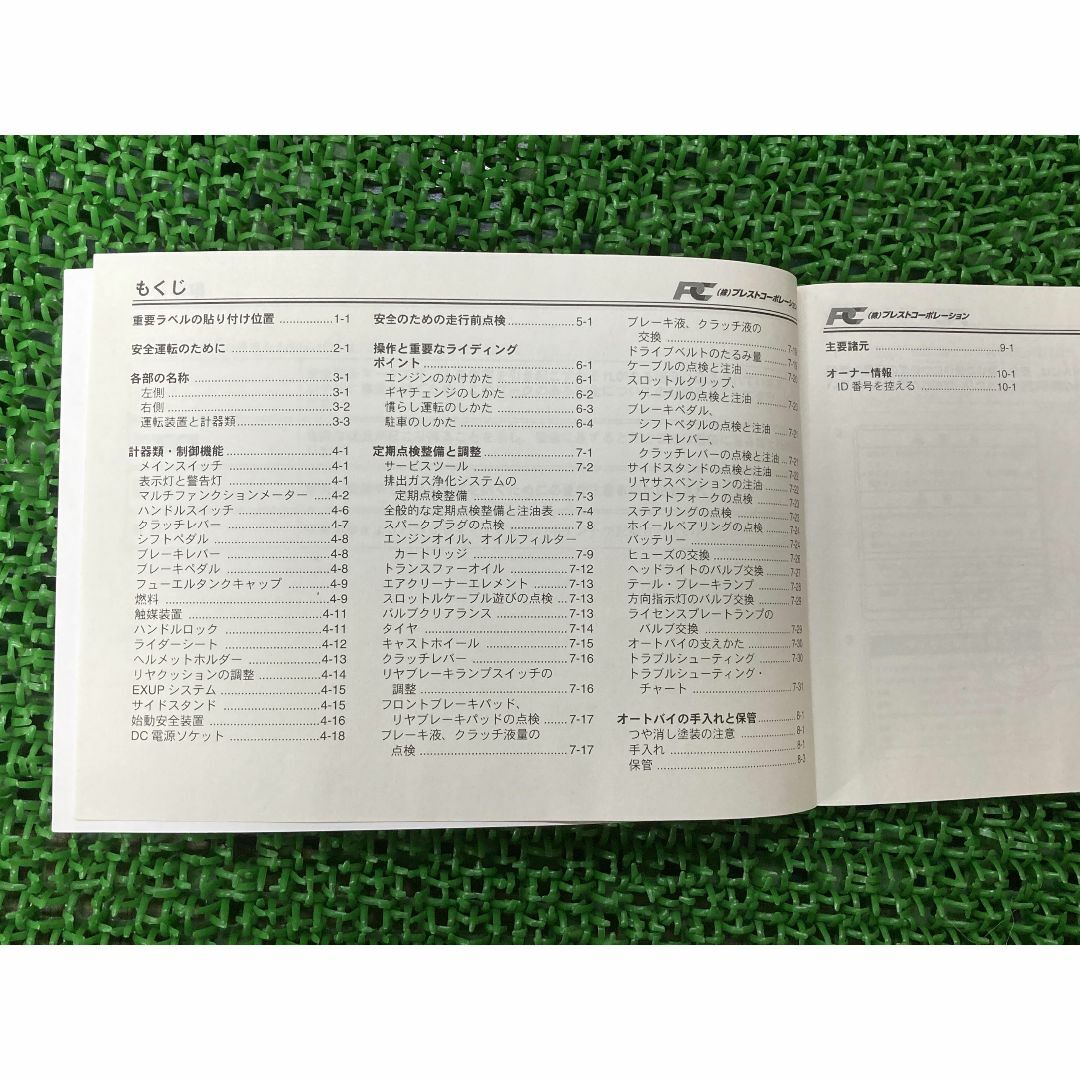 もくじ
PC (株)プレストコーポレーション
重要ラベルの貼り付け位置 ................1-1
安全運転のために ................2-1
各部の名称 ................3-1
左側 ................3-1
右側 ................3-2
運転装置と計器類................3-3
計器類・制御機能 ................4-1
メインスイッチ ................4-1
表示灯と警告灯 ................4-1
マルチファンクションメーター .....4-2
ハンドルスイッチ ................4-6
クラッチレバー ................4-7
シフトペダル ................4-8
ブレーキレバー ................4-8
ブレーキペダル ................4-8
フューエルタンクキャップ ..........4-9
燃料 ................4-9
触媒装置 ................4-11
ハンドルロック ................4-11
ライダーシート ................4-12
ヘルメットホルダー ................4-13
リヤクッションの調整 ................4-14
EXUP システム ................4-15
サイドスタンド ................4-15
始動安全装置 ................4-16
DC 電源ソケット ................4-18
安全のための走行前点検................5-1
操作と重要なライディング
ポイント ................6-1
エンジンのかけかた ................6-1
ギヤチェンジのしかた ................6-2
慣らし運転のしかた ................6-3
駐車のしかた ................6-4
定期点検整備と調整 ................7-1
サービスツール ................7-2
排出ガス浄化システムの
定期点検整備 ................7-3
全般的な定期点検整備と注油表 ....7-4
スパークプラグの点検 ................7 8
エンジンオイル、オイルフィルター
カートリッジ ................7-9
トランスファーオイル ................7-12
エアクリーナーエレメント ..........7-13
スロットルケーブル遊びの点検 ...7-13
バルブクリアランス ................7-13
タイヤ ................7-14
キャストホイール ................7-15
クラッチレバー ................7-16
リヤブレーキランプスイッチの
調整 ................7-16
フロントブレーキパッド、
リヤブレーキパッドの点検 ......7-17
ブレーキ液、クラッチ液量の
点検 ................7-17
ブレーキ液、クラッチ液の
交換 ................7-18
ドライブベルトのたるみ量 ..........7-19
ケーブルの点検と注油 ................7-20
スロットルグリップ、
ケーブルの点検と注油 ..........7-20
ブレーキペダル、
シフトペダルの点検と注油 .....7-21
ブレーキレバー、
クラッチレバーの点検と注油 ...7-21
サイドスタンドの点検と注油 ......7-22
リヤサスペンションの注油 ..........7-22
フロントフォークの点検 ..........7-23
ステアリングの点検 ................7-23
ホイールベアリングの点検 ..........7-24
バッテリー ................7-24
ヒューズの交換 ................7-26
ヘッドライトのバルブ交換 ..........7-27
テール・ブレーキランプ ..........7-28
方向指示灯のバルブ交換 ..........7-28
ライセンスプレートランプの
バルブ交換 ................7-29
オートバイの支えかた ................7-30
トラブルシューティング ..........7-30
トラブルシューティング・
チャート ................7-31
オートバイの手入れと保管 ..........8-1
つや消し塗装の注意 ................8-1
手入れ ................8-1
保管 ................8-3
PC (株)プレストコーポレーション
主要諸元 ................9-1
オーナー情報 ................10-1
ID 番号を控える ................10-1